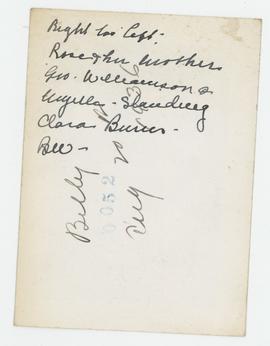 Right to Left:
Rose & her mother
Geo. Williamson &
Standing
Clara Burns -
Bee -
Billy
0052